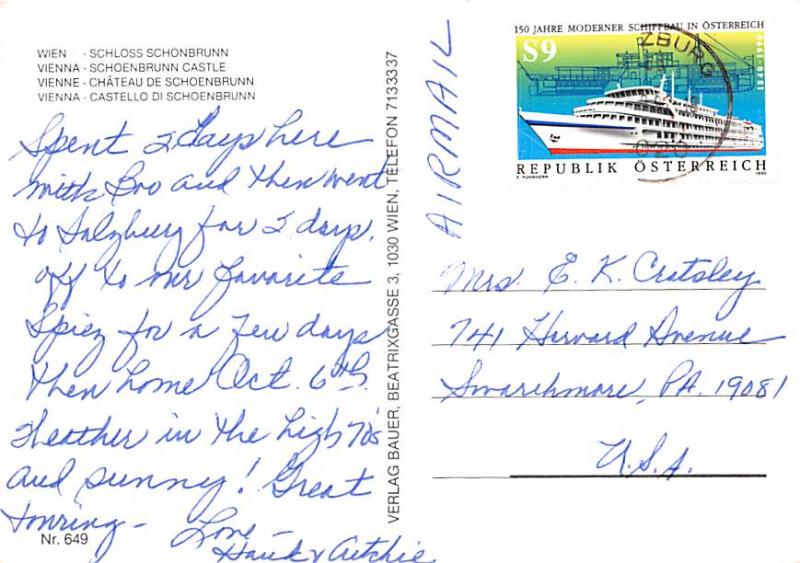 WIEN - SCHLOSS SCHÖNBRUNN
VIENNA - SCHOENBRUNN CASTLE
VIENNE - CHÂTEAU DE SCHOENBRUNN
VIENNA - CASTELLO DI SCHOENBRUNN
Spent 2 days here
with Boo and then went
to Salzburg for 2 days.
off to our favorite
Spiez for a few days
then home Oct. 6th.
Weather in the high 70's
and sunny! Great
touring - Love -
Nr. 649
VERLAG BAUER, BEATRIXGASSE 3, 1030 WIEN, TELEFON 7133337
AIRMAIL
150 JAHRE MODERNER SCHIFFBAU IN ÖSTERREICH
S9
1840-1990
REPUBLIK ÖSTERREICH
1990
ZBURG
Mrs. E. K. Cratsley
741 Harvard Avenue
Swarthmore, PA. 19081
U.S.A.